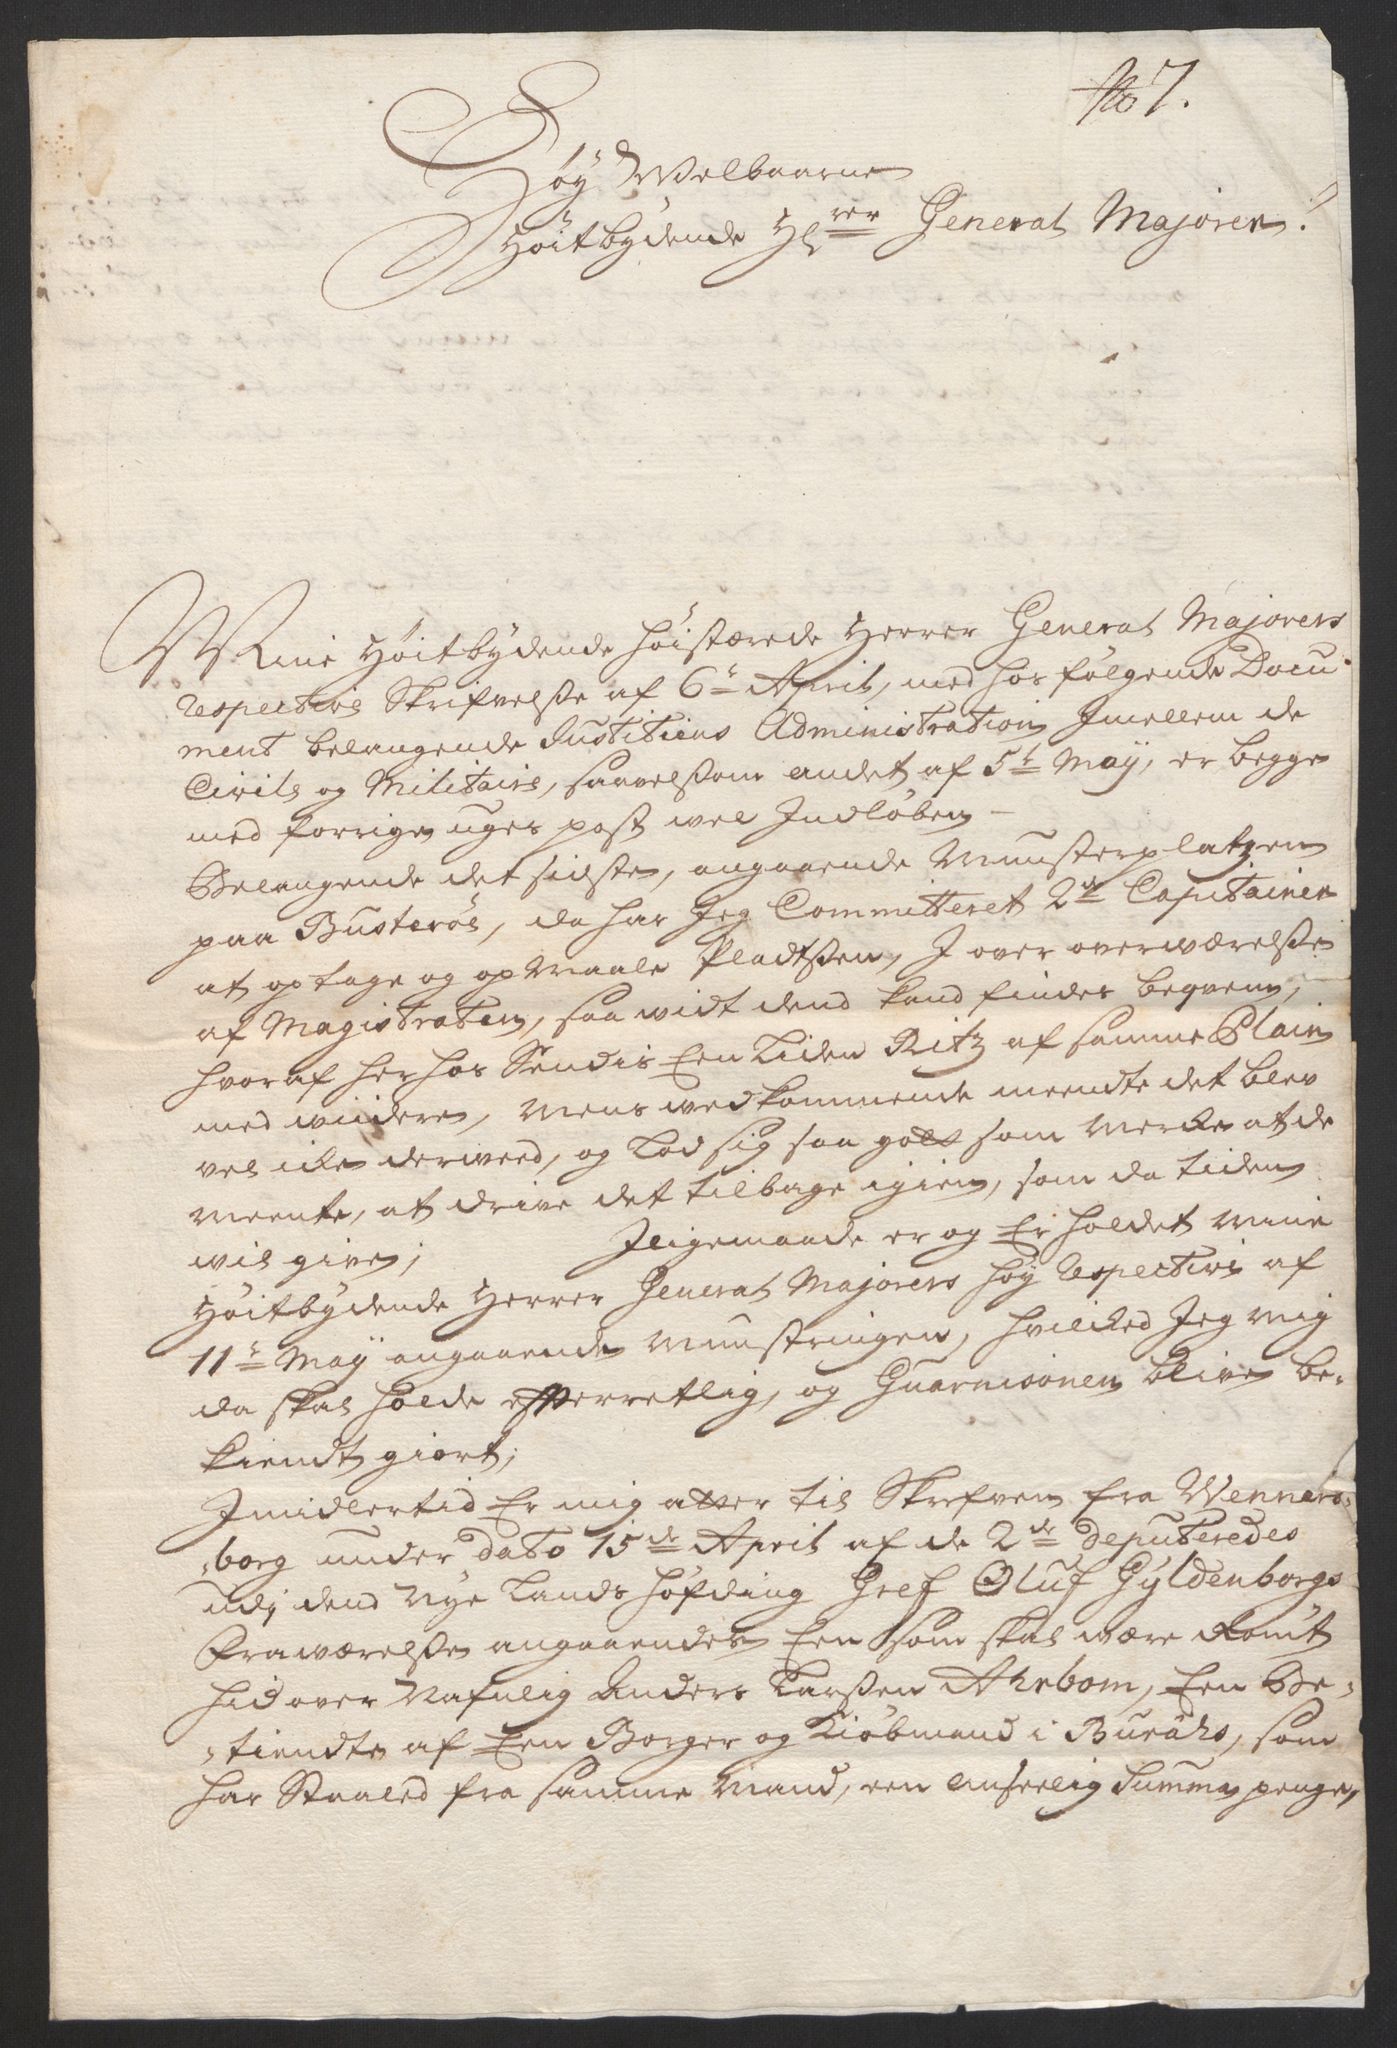 No 7.
Høy Welbaarne
Høitbydende Hrer General Majoren!
Mine Høitbydende høistærede Herrer General Majorers
respective Skrifvelsse af 6te April, med hos følgende Docu-
ment belangende Justitiens Administration Imellem de
Civile og Militaire, saavelsom andet af 5te May, er begge
med forrige uges post wel Indløben -
Belangende det sidste, angaaende Munsterplatzen
paa Busterøe, da har Jeg Committeret 2de Capitainer
at optage og opmaale Pladtssen, J over overværelsse
af Magistraten, saa widt dend kand findes beqvem,
hvoraf herhos Sendis Een liden Ritz af samme Plain
med widere, mens wedkommende meendte det blev
vel iche derweed, og lod sig saa gott som merche at de
meente, at drive det tilbage igien, som da tiden
wil give; Iligemaade er og Er holdet mine
Høitbydende Herrer General Majorers høy respective af
11te May angaaende Munstringen, hvilched Jeg mig
da skal holde efterretlig, og Guarnisonen blive be-
kiendt giort;
Imidlertid Er mig atter til Skrefven fra Wenners-
borg under dato 15de April af de 2de deputeredes
udi dend Nye Lands høfding Gref Oluf Gyldenborgs
Fraværelsse angaaendes Een som skal være Rømt
hid over Nafnlig Anders Larssen Ahrbom, Een Be-
tiendte af Een Borger og Kiøbmand i Buråhs, som
har Staaled fra samme Mand, een anseelig Summa penge,